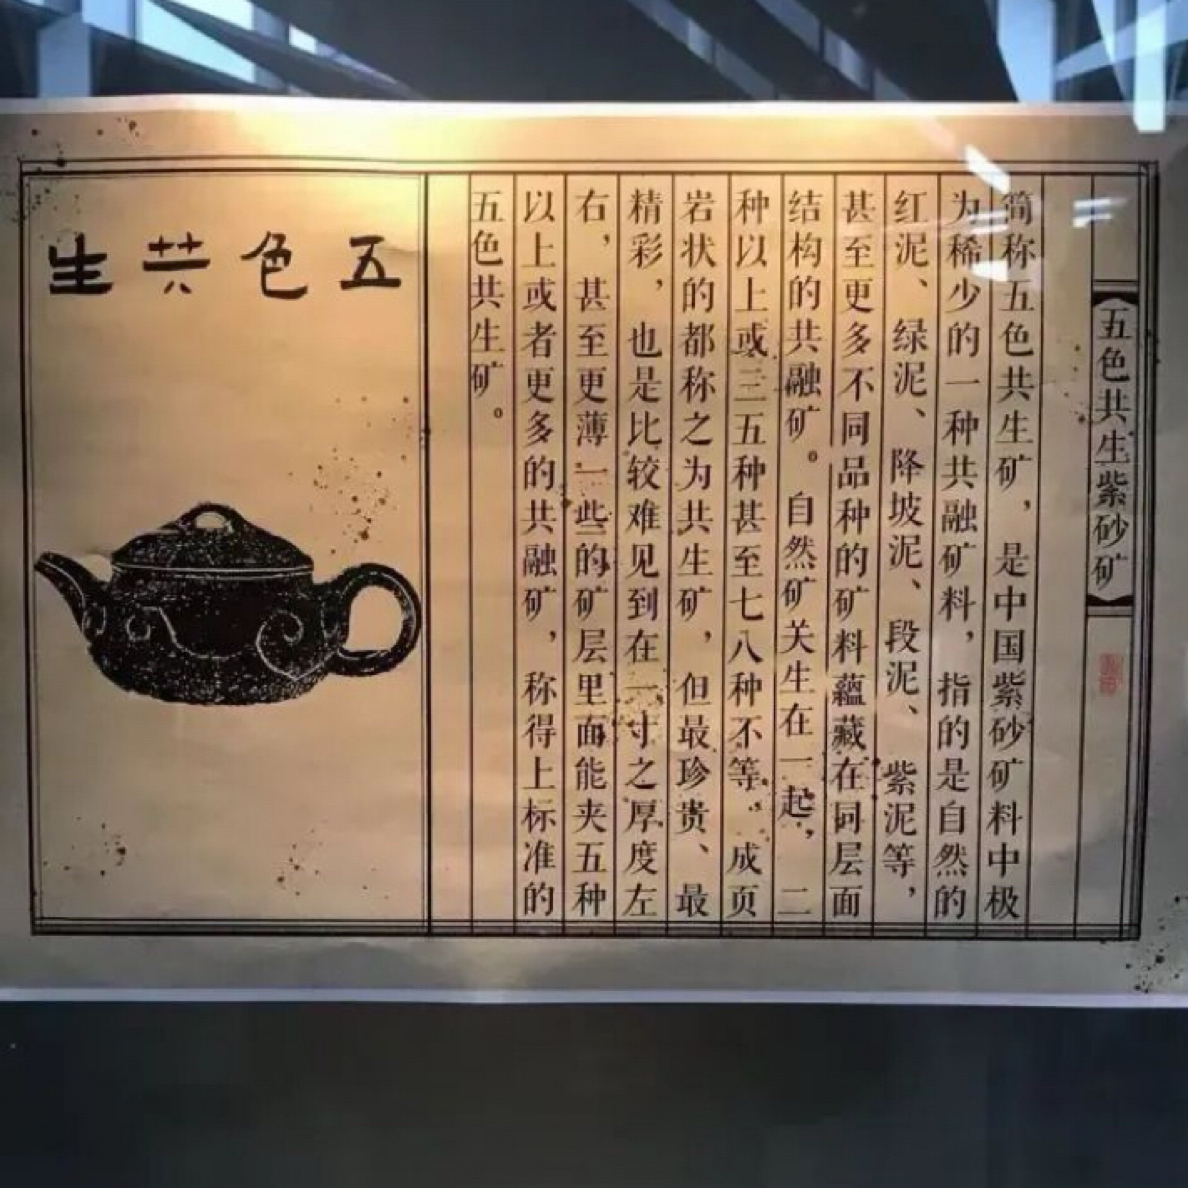 五色共生紫砂矿
简称五色共生矿，是中国紫砂矿料中极
为稀少的一种共融矿料，指的是自然的
红泥、绿泥、降坡泥、段泥、紫泥等，
甚至更多不同品种的矿料蕴藏在同层面
结构的共融矿。自然矿关生在一起，二
种以上或三五种甚至七八种不等。成页
岩状的都称之为共生矿，但最珍贵、最
精彩，也是比较难见到在一寸之厚度左
右，甚至更薄一些的矿层里面能夹五种
以上或者更多的共融矿，称得上标准的
五色共生矿。
五色共生